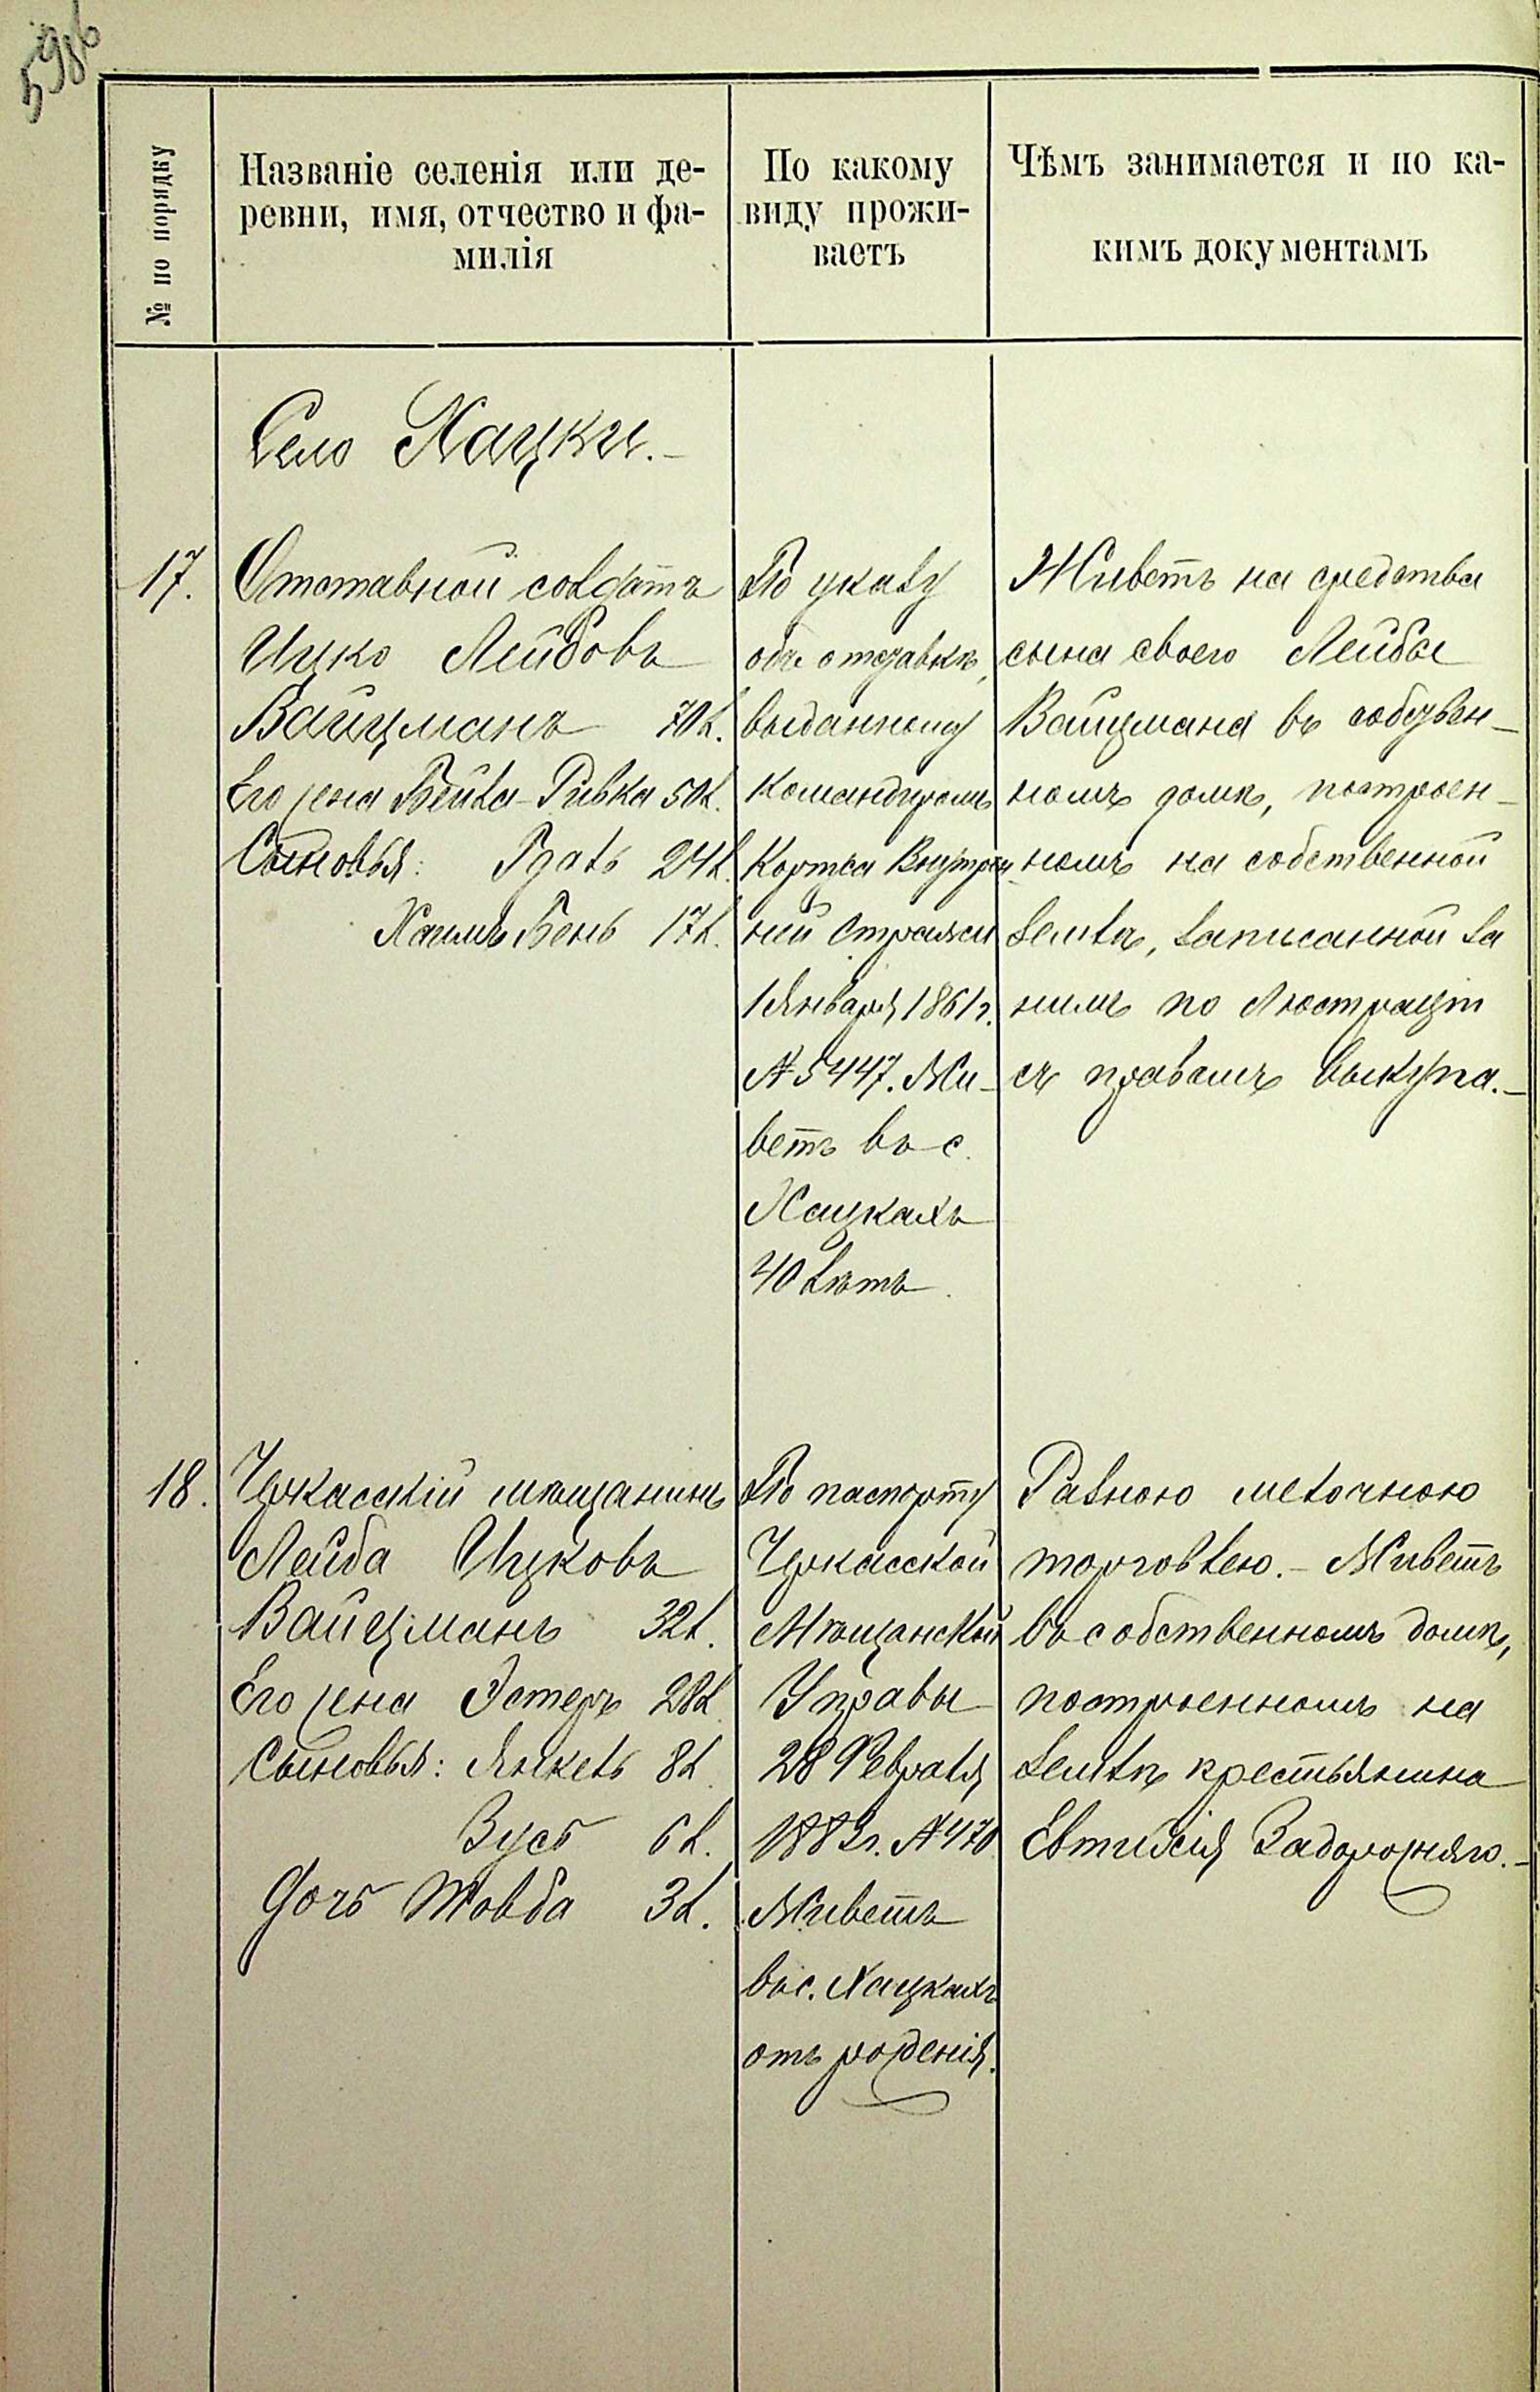 № по порядку
Названіе селенія или де-
ревни, имя, отчество и фа-
милія
По какому
виду прожи-
ваетъ
Чѣмъ занимается и по ка-
кимъ документамъ
Село Хацки.-
17.
Отставной солдатъ
Ицко Лейбовъ
Вайцманъ 70 л.
Его жена Бейла-Ривка 50 л.
Сыновья: 24 л.
Хаимъ Бень 17 л.
По указу
объ отставкѣ,
выданному
Командиромъ
Корпуса Внутрен-
ней Стражи
1 Января 1861 г.
№ 5447. Жи-
ветъ въ с.
Хацкахъ
40 лѣтъ.
Живетъ на средства
сына своего Лейбы
Вайцмана въ собствен-
номъ домѣ, построен-
номъ на собственной
землѣ, записанной за
нимъ по Люстраціи
съ правомъ выкупа.-
18.
Черкасскій мѣщанинъ
Лейба Ицковъ
Вайцманъ 32 л.
Его жена Эстеръ 28 л.
Сыновья: Янкель 8 л.
Зусь 6 л.
Дочь Товба 3 л.
По паспорту
Черкасской
Мѣщанской
Управы
28 Февраля
188 г. № 470
Живетъ
въ с. Хацкахъ
отъ рожденія.
Разною мелочною
торговлею.- Живетъ
въ собственномъ домѣ,
построенномъ на
землѣ крестьянина
Евтихія Задорожняго.-